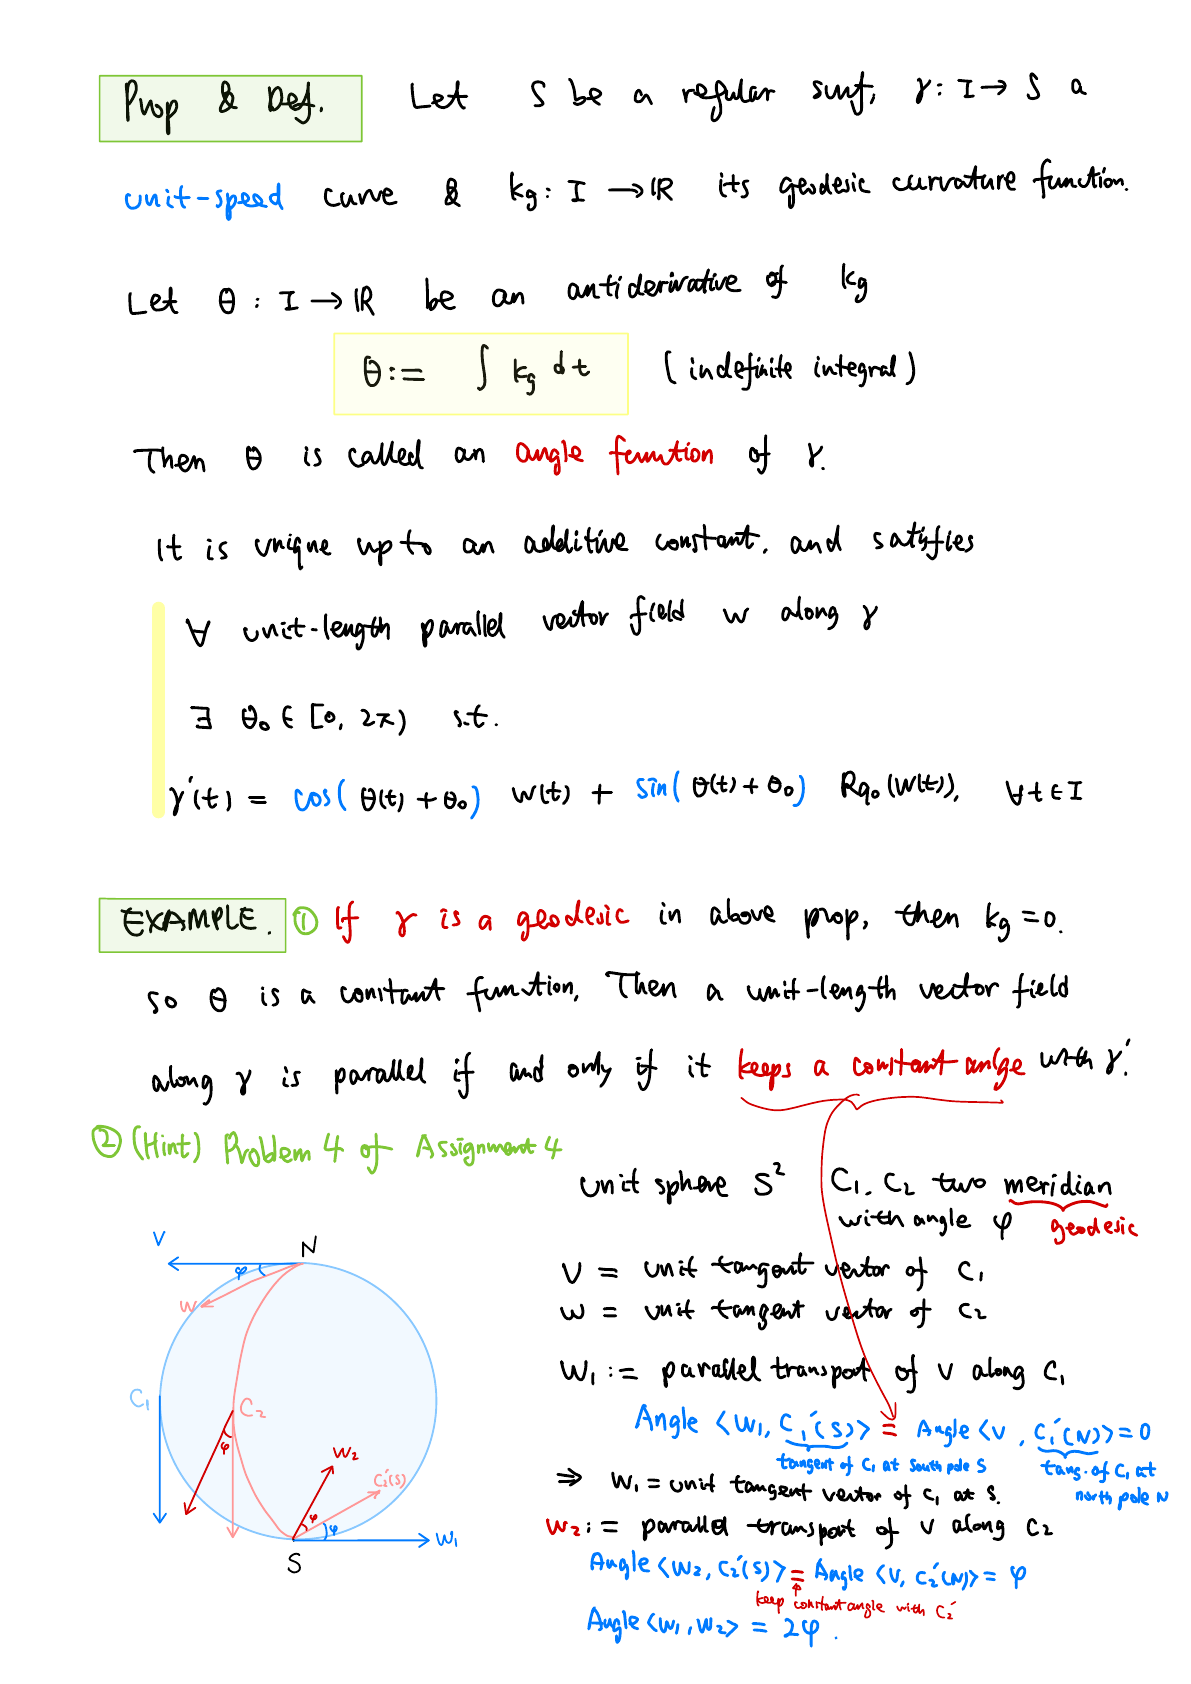 Prop & Def. Let S be a regular surf, γ: I → S a
unit-speed curve & kg: I → ℝ its geodesic curvature function.
Let θ: I → ℝ be an antiderivative of kg
θ := ∫ kg dt (indefinite integral)
Then θ is called an angle function of γ.
It is unique up to an additive constant, and satisfies
∀ unit-length parallel vector field w along γ
∃ θ₀ ∈ [0, 2π) s.t.
γ'(t) = cos(θ(t) + θ₀) W(t) + sin(θ(t) + θ₀) R₉₀(W(t)), ∀t ∈ I
EXAMPLE. ① If γ is a geodesic in above prop, then kg = 0.
So θ is a constant function, Then a unit-length vector field
along γ is parallel if and only if it keeps a constant anlge with γ'.
② (Hint) Problem 4 of Assignment 4
unit sphere S² C₁, C₂ two meridian
with angle φ geodesic
V = unit tangent vector of C₁
w = unit tangent vector of C₂
W₁ := parallel transport of V along C₁
Angle <W₁, C₁'(S)> = Angle <V, C₁'(N)> = 0
tangent of C₁ at south pole S tang. of C₁ at
north pole N
⇒ W₁ = unit tangent vector of C₁ at S.
W₂ := parallel transport of V along C₂
Angle <W₂, C₂'(S)> = Angle <V, C₂'(N)> = φ
keep constant angle with C₂'
Angle <W₁, W₂> = 2φ.
V
N
φ
W
C₁
C₂
φ
W₂
C₂'(S)
φ
φ
W₁
S